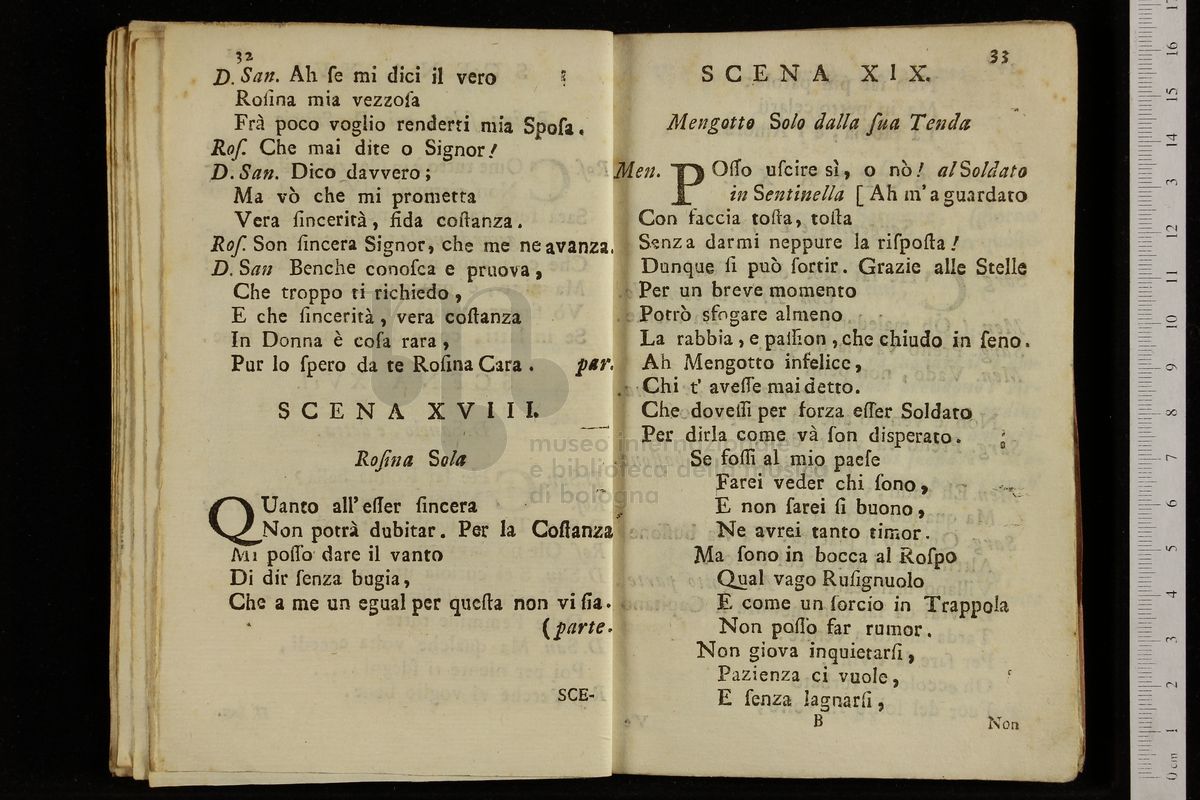 32
D. San. Ah ſe mi dici il vero
Roſina mia vezzoſa
Frà poco voglio renderti mia Spoſa.
Roſ. Che mai dite o Signor!
D. San. Dico davvero;
Ma vò che mi prometta
Vera ſincerità, fida coſtanza.
Roſ. Son ſincera Signor, che me ne avanza.
D. San Benche conoſca e pruova,
Che troppo ti richiedo,
E che ſincerità, vera coſtanza
In Donna è coſa rara,
Pur lo ſpero da te Roſina Cara. par.
SCENA XVIII.
Roſina Sola
QUanto all' eſſer ſincera
Non potrà dubitar. Per la Coſtanza
Mi poſſo dare il vanto
Di dir ſenza bugia,
Che a me un egual per queſta non vi ſia.
(parte.
SCE-
33
SCENA XIX.
Mengotto Solo dalla ſua Tenda
Men. POſſo uſcire sì, o nò! al Soldato
in Sentinella [Ah m' a guardato
Con faccia toſta, toſta
Senza darmi neppure la riſpoſta!
Dunque ſi può ſortir. Grazie alle Stelle
Per un breve momento
Potrò sfogare almeno
La rabbia, e paſſion, che chiudo in ſeno.
Ah Mengotto infelice,
Chi t' aveſſe mai detto.
Che doveſſi per forza eſſer Soldato
Per dirla come và ſon disperato.
Se foſſi al mio paeſe
Farei veder chi ſono,
E non ſarei ſi buono,
Ne avrei tanto timor.
Ma ſono in bocca al Roſpo
Qual vago Ruſignuolo
E come un ſorcio in Trappola
Non poſſo far rumor.
Non giova inquietarſi,
Pazienza ci vuole,
E ſenza lagnarſi,
B
Non
museo internazionale
e biblioteca della musica
di bologna
0 cm 1 2 3 4 5 6 7 8 9 10 11 12 13 14 15 16 17